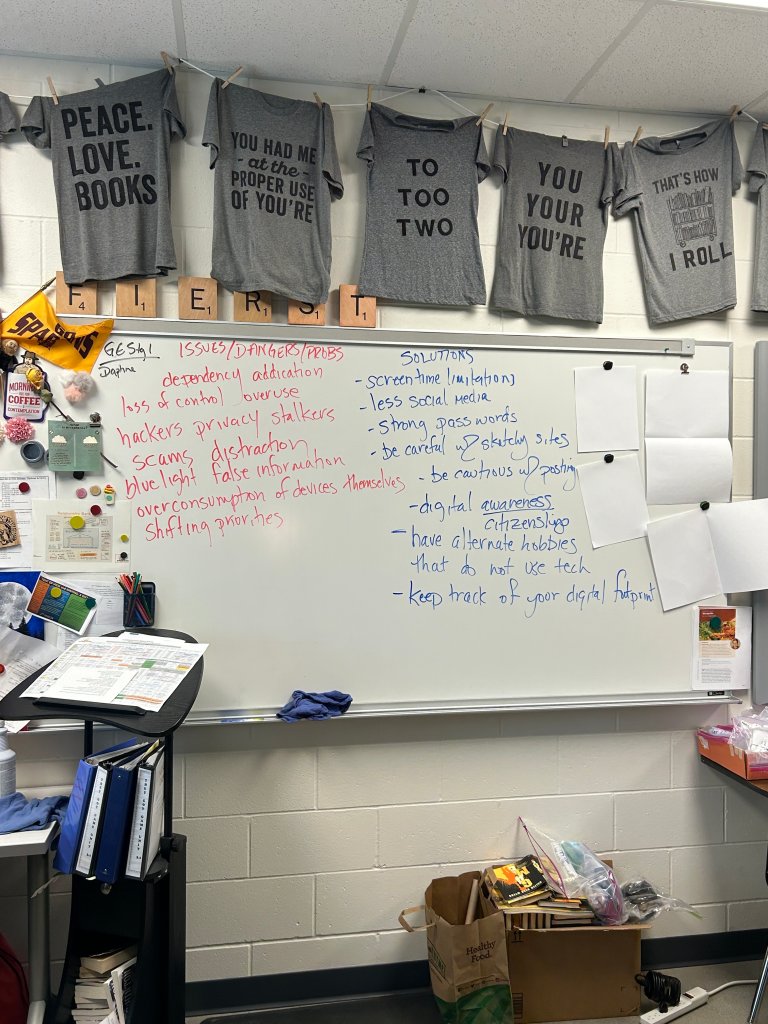 PEACE.
LOVE.
BOOKS
YOU HAD ME
- at the -
PROPER USE
OF YOU'RE
TO
TOO
TWO
YOU
YOUR
YOU'RE
THAT'S HOW
I ROLL
F4 I1 E1 R1 S1 T1
ISSUES/DANGERS/PROBS
dependency addication
loss of control overuse
hackers privacy stalkers
scams distraction
bluelight false information
overconsumption of devices themselves
shifting priorities
SOLUTIONS
- screentime limitations
- less social media
- strong passwords
- be careful w/ sketchy sites
- be cautious w/ posting
- digital awareness
citizenship
- have alternate hobbies
that do not use tech
- keep track of your digital footprint
Daphne
MORNING
COFFEE
CONTEMPLATION
Healthy
Food.